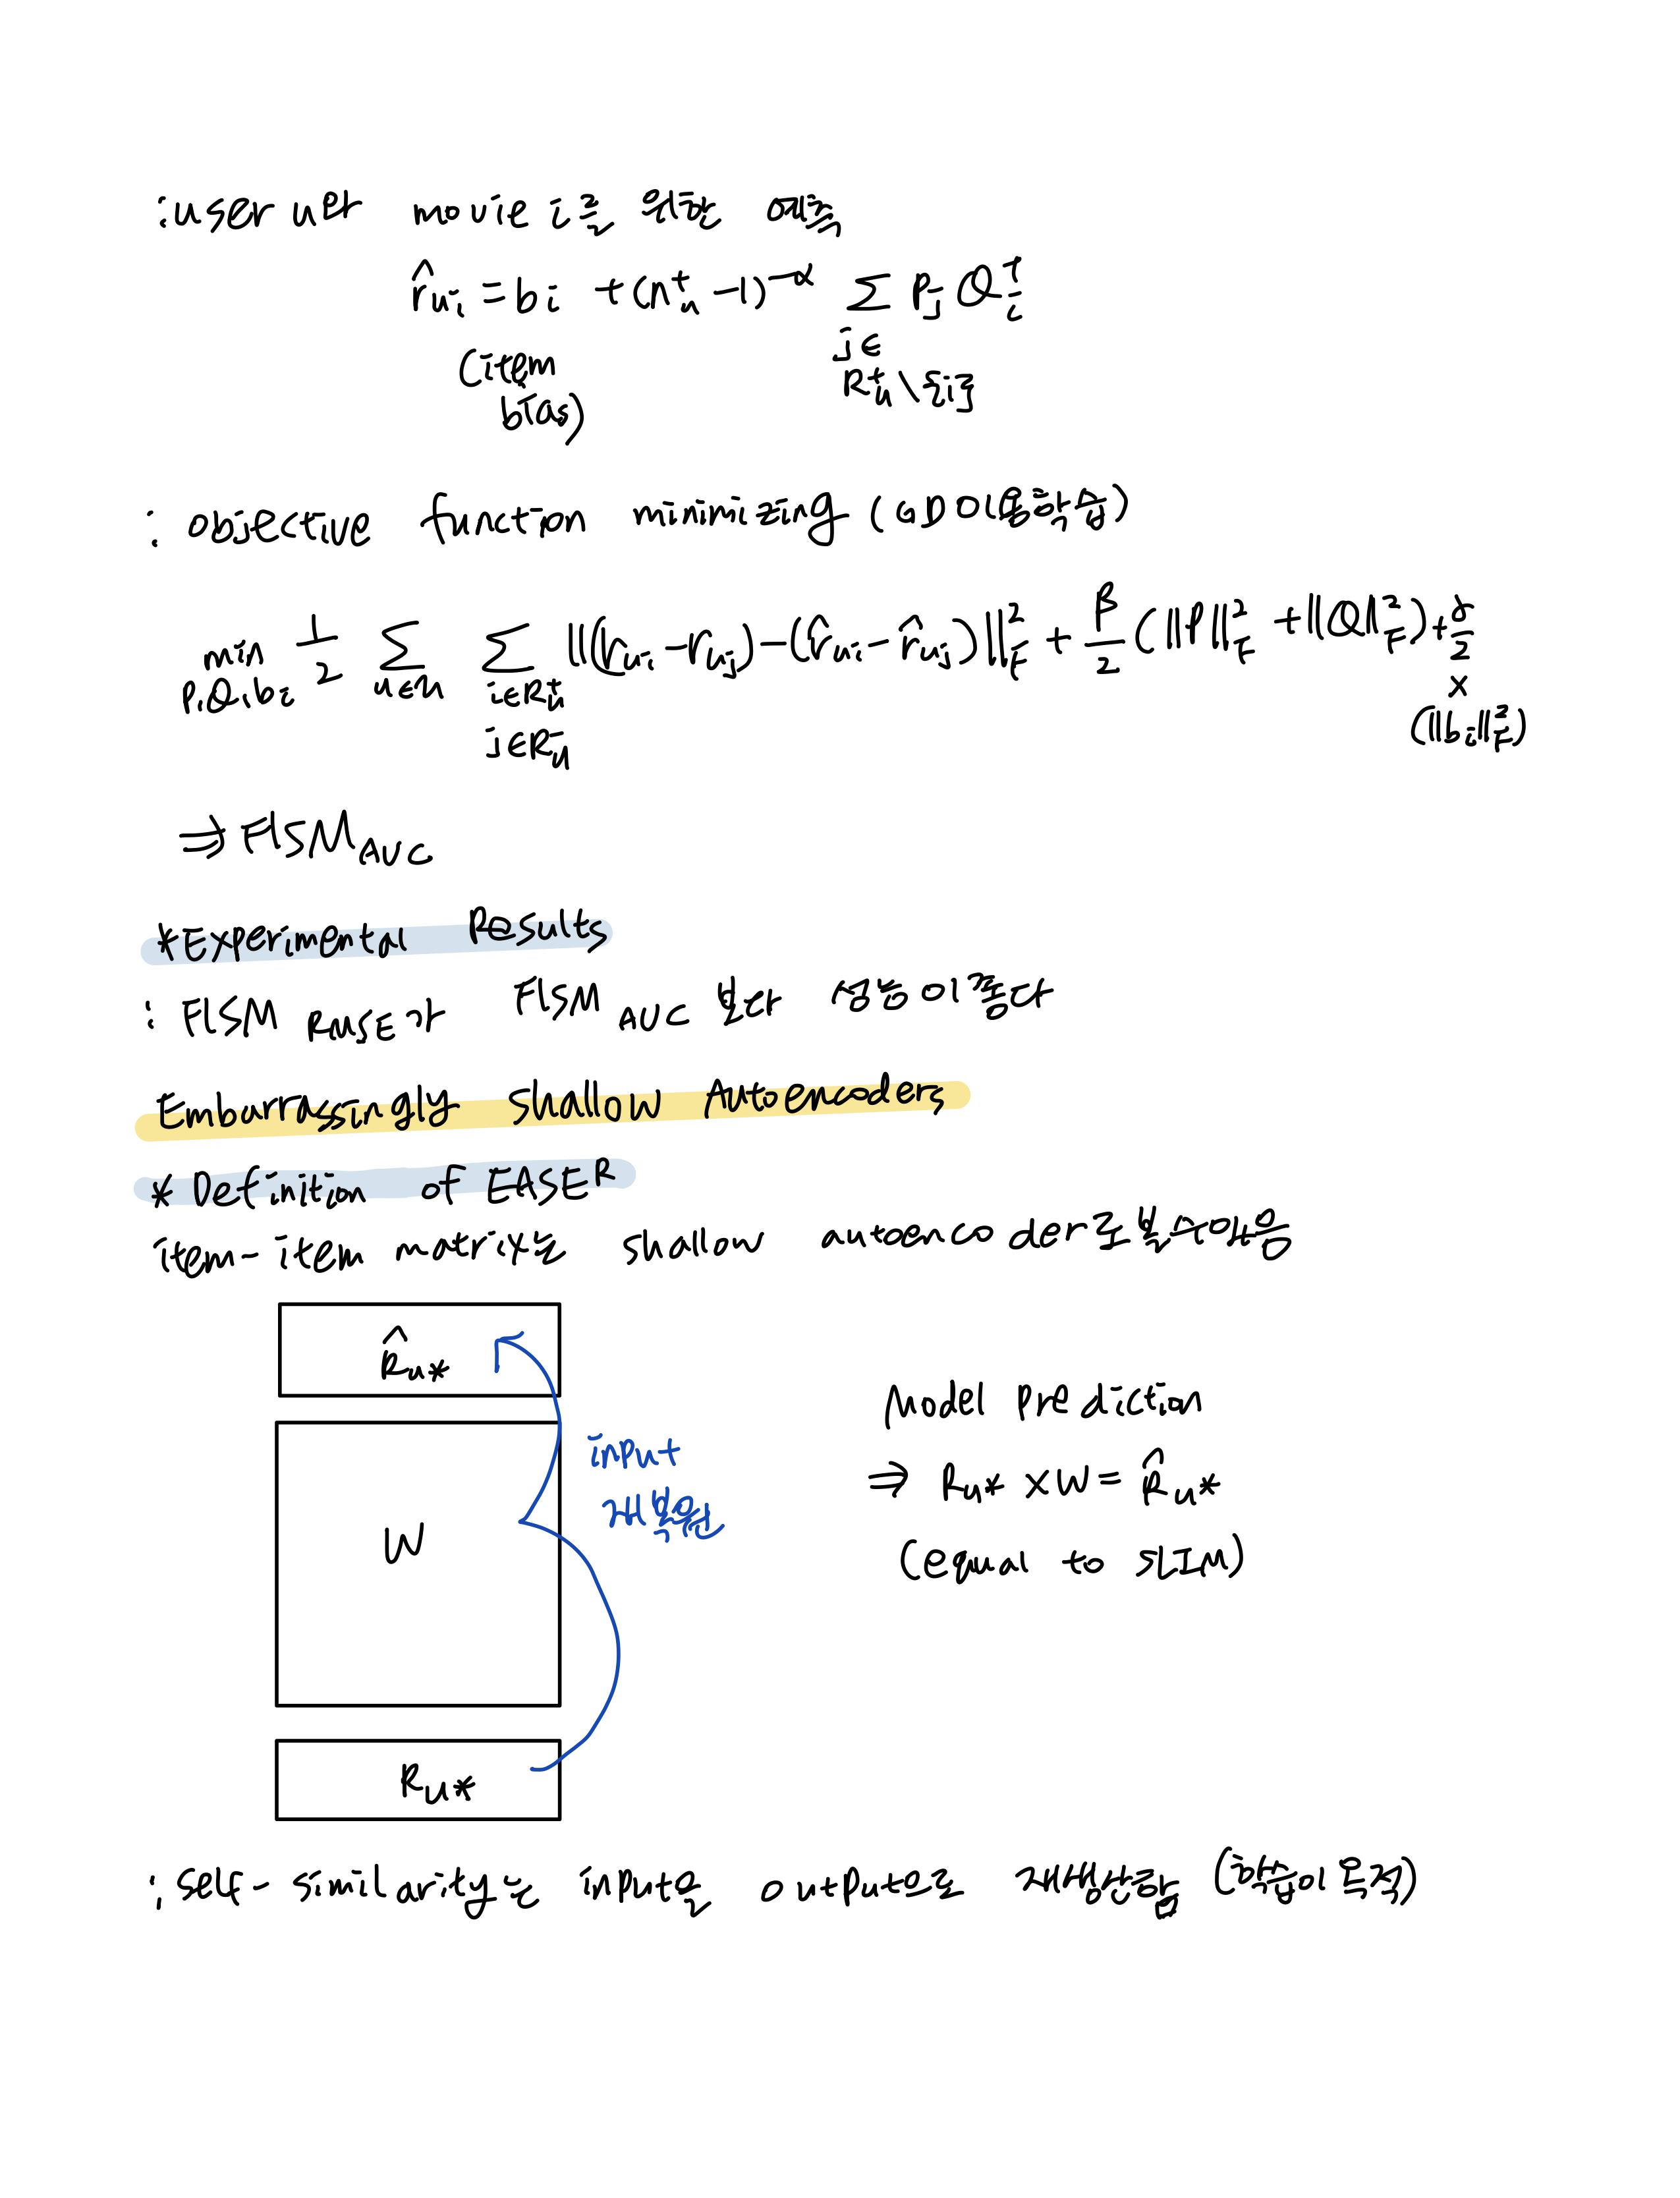 : user u와 movie i를 위한 예측
r̂ui = bi + (nu⁺ - 1)^-α Σ Pj Qiᵀ
j∈
Ru⁺\{i}
(item
bias)
: objective function minimizing (GD이용학습)
min 1/2 Σ Σ ||(rui - ruj) - (r̂ui - r̂uj)||²F + β/2 (||P||²F + ||Q||²F) + γ/2
P,Q,bi u∈U i∈Ru⁺
j∈Ru⁻
×
(||bi||²F)
⇒ FISM AUC
*Experimental Results
: FISM RMSE가 FISM AUC 보다 성능이좋다
Embarrassingly shallow Autoencoders
* Definition of EASER
item-item matrix는 shallow autoencoder로볼수있음
R̂u*
Model prediction
input
재복원
⇒ Ru* × W = R̂u*
W
(equal to SLIM)
Ru*
: self-similarity는 input을 output으로 재생산함 (학습이 목적)